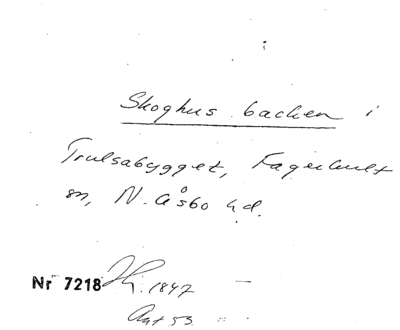 Skoghus backen i
Trulsabygget, Fagerhult
sn, N. Åsbo hd.
Nr 7218 1847